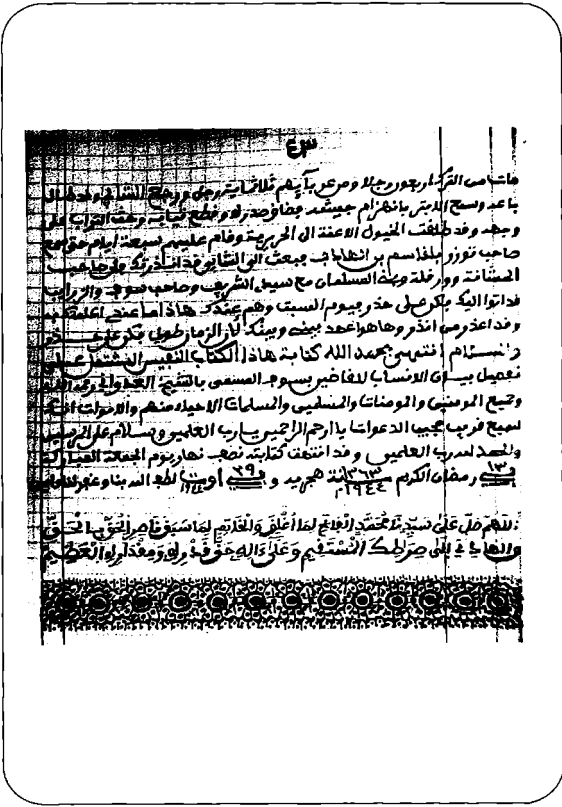 ٤٣
مات من الترك اربعون رجلا ومن عر بآيهم ثلاثماية رجل ورجع الشابي
باعد وسمع الا بانهزام جيشه فضاق صدره وقطع ثيابه وحث التراب على
وجهه وقد طلقت الخيول الاعنة الى وقام عليهم سبعة ايام حتى مع
صاحب توزر بلقاسم بن مبعث الى الشابي
وورفلة السلمان مع سيدي الشريف وصاحب سوف
قد اتوا اليك بكن على حذر بيوم السبت وهم عندك هاذا ما عندي اعلمتك به
وقد اعذر من انذر وها هو اعهد بيني وبينك الزمان طويل بكن على حذر
والسلام انتهى بحمد الله كتابة هاذا الكتاب النفيس المشتمل على
تفصيل بيان الانساب القاضين بسوف المسمى بالشيخ العدواني
وجميع المومنين والمومنات والمسلمين والمسلمات الاحياء منهم والاموات انك
سميع قريب مجيب الدعوات يا ارحم الراحمين يا رب العلمين وسلام على المرسلين
والحمد لله رب العلمين وقد انتهت كتابته نصف نهار يوم الجمعة المباركة
في ١٣ رمضان الكريم ١٣٦٣ سنة هجرية و في ٢٩ اوت ١٩٤٤م لطف الله بنا وغفر
اللهم صل على سيدنا محمد الفاتح لما أغلق والخاتم لما سبق ناصر الحق بالحق
والهادي إلى صراطك المستقيم وعلى ءاله حق قدره ومقداره العظيم